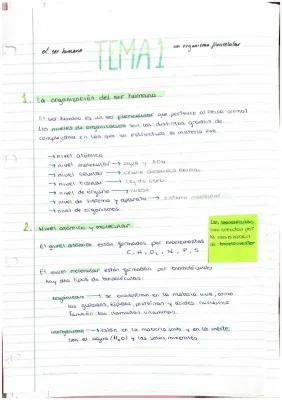 el ser humano TEMA 1 un organismo pluricelular
1. La organización del ser humano
El ser humano es un ser pluricelular que pertenece al reino animal
Los niveles de organización son los distintos grados de
complejidad en los que se estructura la materia viva.
→ nivel atómico
→ nivel molecular → agua y ADN
→ nivel celular → célula
→ nivel tisular → tejido
→ nivel de órgano →
→ nivel de sistema y aparato → sistema
→ nivel de organismo
2. Nivel atómico y molecular
El nivel atómico están formados por bioelementos
C, H, O, N, P, S
El nivel molecular están formados por biomoléculas
hay dos tipos de biomoléculas:
orgánicas → se encuentran en la materia viva, como
los glúcidos, lípidos, proteínas y ácidos nucleicos
También los llamados vitaminas.
inorgánicas → están en la materia viva y en la inerte:
son el agua (H₂O) y las sales minerales.
Las biomoléculas
son creadas por
la
de bioelementos